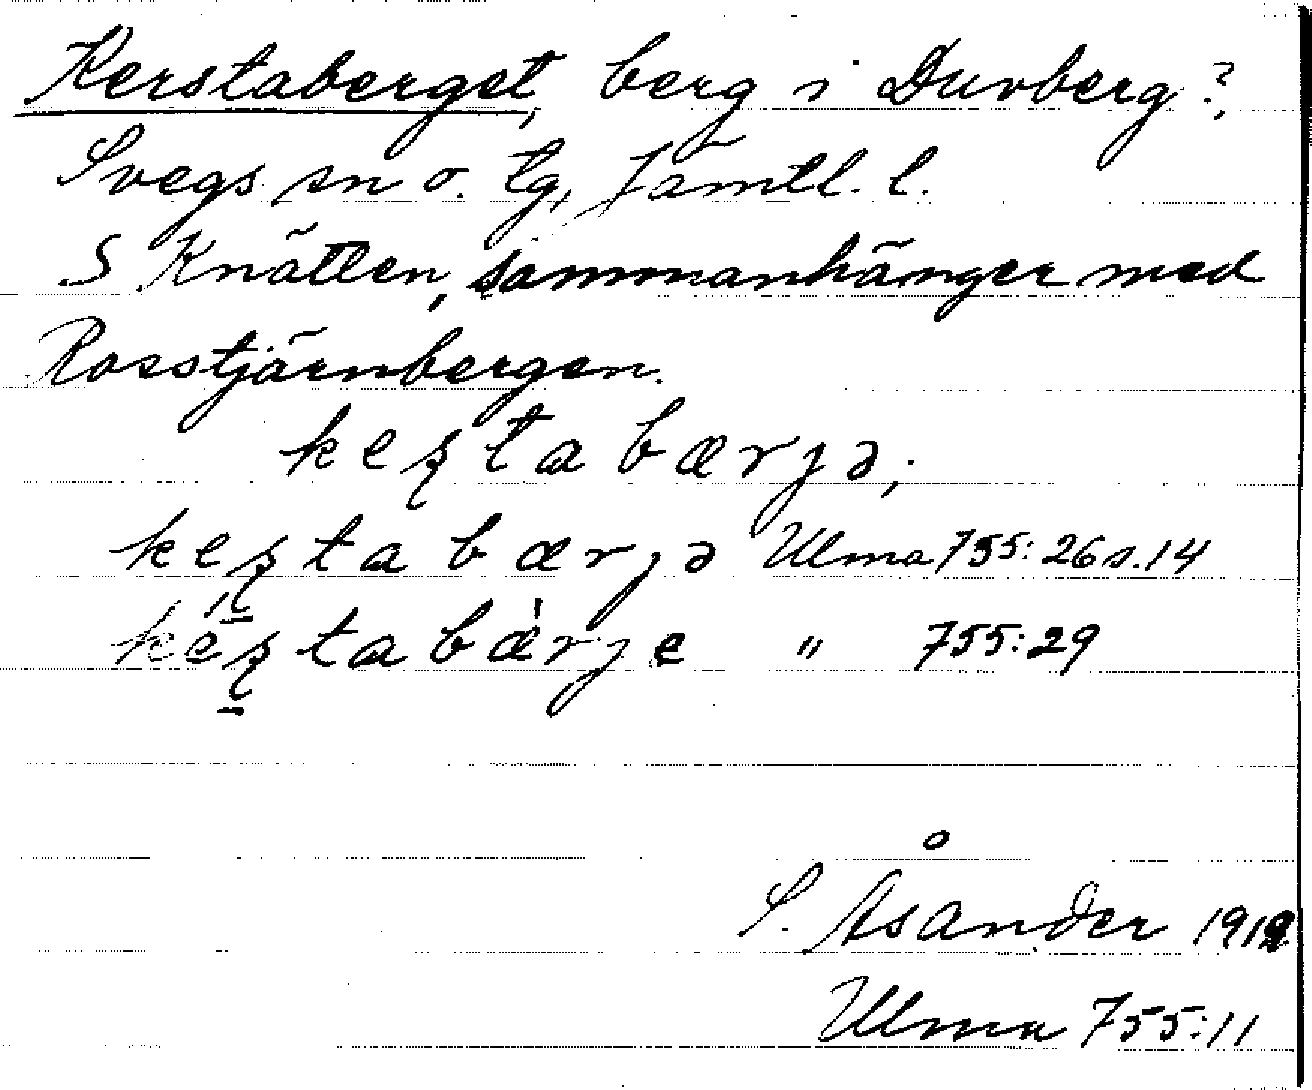 Kerstaberget, berg i Duvberg?,
Svegs sn o. tg, Jämtl. l.
S Knätten, sammanhänger med
Rosstjärnbergen.
keʂtabærjə,
keʂtabærjə Ulma 755:26 s.14
kéʂtabæ̀rje " 755:29
S. Åsander 1912
Ulma 755:11